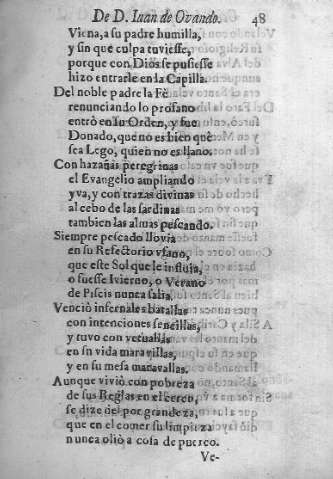 De D. Iuan de Ovando. 48
Viena, a su padre humilla,
y sin que culpa tuviesse,
porque con Dios se pusiesse
hizo entrarle en la Capilla.
Del noble padre la Fè
renunciando lo profano
entrò en su Orden, y fue
Donado, que no es bien què
sea Lego, quien no es llano.
Con hazañas peregrinas
el Evangelio ampliando
yva, y con trazas divinas
al cebo de las sardinas
tambien las almas pescando.
Siempre pescado llovia
en su Refectorio vfano,
que este Sol que le influìa,
o fuesse Ivierno, o Verano
de Piscis nunca salia.
Venciò infernales batallas
con intenciones sencillas,
y tuvo con vetuallas
en sn vida maravillas,
y en su mesa maravallas.
Aunque viviò con pobreza
de sus Reglas en el cerco,
se dize del por grandeza,
que en el comer su limpieza
nunca oliò a cosa de puerco.
Ve-